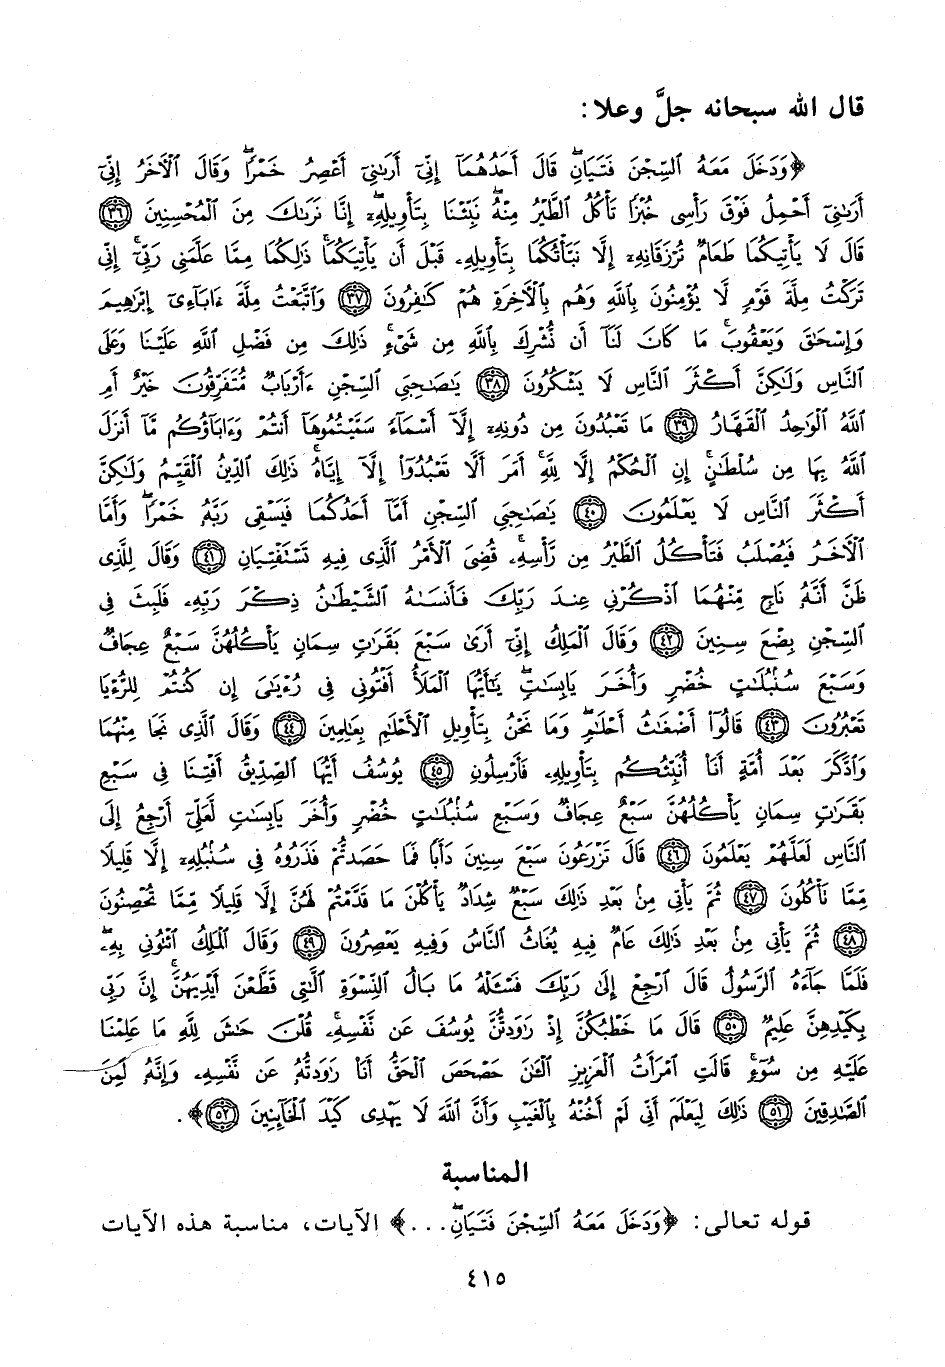 قال الله سبحانه جلَّ وعلا:
﴿وَدَخَلَ مَعَهُ ٱلسِّجْنَ فَتَيَانِۖ قَالَ أَحَدُهُمَآ إِنِّىٓ أَرَىٰنِىٓ أَعْصِرُ خَمْرًاۖ وَقَالَ ٱلْـَٔاخَرُ إِنِّىٓ
أَرَىٰنِىٓ أَحْمِلُ فَوْقَ رَأْسِى خُبْزًا تَأْكُلُ ٱلطَّيْرُ مِنْهُۖ نَبِّئْنَا بِتَأْوِيلِهِۦٓۖ إِنَّا نَرَىٰكَ مِنَ ٱلْمُحْسِنِينَ ﴿٣٦﴾
قَالَ لَا يَأْتِيكُمَا طَعَامٌ تُرْزَقَانِهِۦٓ إِلَّا نَبَّأْتُكُمَا بِتَأْوِيلِهِۦ قَبْلَ أَن يَأْتِيَكُمَاۚ ذَٰلِكُمَا مِمَّا عَلَّمَنِى رَبِّىٓۚ إِنِّى
تَرَكْتُ مِلَّةَ قَوْمٍ لَّا يُؤْمِنُونَ بِٱللَّهِ وَهُم بِٱلْـَٔاخِرَةِ هُمْ كَـٰفِرُونَ ﴿٣٧﴾ وَٱتَّبَعْتُ مِلَّةَ ءَابَآءِىٓ إِبْرَٰهِيمَ
وَإِسْحَـٰقَ وَيَعْقُوبَۚ مَا كَانَ لَنَآ أَن نُّشْرِكَ بِٱللَّهِ مِن شَىْءٍۚ ذَٰلِكَ مِن فَضْلِ ٱللَّهِ عَلَيْنَا وَعَلَى
ٱلنَّاسِ وَلَـٰكِنَّ أَكْثَرَ ٱلنَّاسِ لَا يَشْكُرُونَ ﴿٣٨﴾ يَـٰصَـٰحِبَىِ ٱلسِّجْنِ ءَأَرْبَابٌ مُّتَفَرِّقُونَ خَيْرٌ أَمِ
ٱللَّهُ ٱلْوَٰحِدُ ٱلْقَهَّارُ ﴿٣٩﴾ مَا تَعْبُدُونَ مِن دُونِهِۦٓ إِلَّآ أَسْمَآءً سَمَّيْتُمُوهَآ أَنتُمْ وَءَابَآؤُكُم مَّآ أَنزَلَ
ٱللَّهُ بِهَا مِن سُلْطَـٰنٍۚ إِنِ ٱلْحُكْمُ إِلَّا لِلَّهِۚ أَمَرَ أَلَّا تَعْبُدُوٓا۟ إِلَّآ إِيَّاهُۚ ذَٰلِكَ ٱلدِّينُ ٱلْقَيِّمُ وَلَـٰكِنَّ
أَكْثَرَ ٱلنَّاسِ لَا يَعْلَمُونَ ﴿٤٠﴾ يَـٰصَـٰحِبَىِ ٱلسِّجْنِ أَمَّآ أَحَدُكُمَا فَيَسْقِى رَبَّهُۥ خَمْرًاۖ وَأَمَّا
ٱلْـَٔاخَرُ فَيُصْلَبُ فَتَأْكُلُ ٱلطَّيْرُ مِن رَّأْسِهِۦۚ قُضِىَ ٱلْأَمْرُ ٱلَّذِى فِيهِ تَسْتَفْتِيَانِ ﴿٤١﴾ وَقَالَ لِلَّذِى
ظَنَّ أَنَّهُۥ نَاجٍ مِّنْهُمَا ٱذْكُرْنِى عِندَ رَبِّكَ فَأَنسَىٰهُ ٱلشَّيْطَـٰنُ ذِكْرَ رَبِّهِۦ فَلَبِثَ فِى
ٱلسِّجْنِ بِضْعَ سِنِينَ ﴿٤٢﴾ وَقَالَ ٱلْمَلِكُ إِنِّىٓ أَرَىٰ سَبْعَ بَقَرَٰتٍ سِمَانٍ يَأْكُلُهُنَّ سَبْعٌ عِجَافٌ
وَسَبْعَ سُنۢبُلَـٰتٍ خُضْرٍ وَأُخَرَ يَابِسَـٰتٍۖ يَـٰٓأَيُّهَا ٱلْمَلَأُ أَفْتُونِى فِى رُءْيَـٰىَ إِن كُنتُمْ لِلرُّءْيَا
تَعْبُرُونَ ﴿٤٣﴾ قَالُوٓا۟ أَضْغَـٰثُ أَحْلَـٰمٍۖ وَمَا نَحْنُ بِتَأْوِيلِ ٱلْأَحْلَـٰمِ بِعَـٰلِمِينَ ﴿٤٤﴾ وَقَالَ ٱلَّذِى نَجَا مِنْهُمَا
وَٱدَّكَرَ بَعْدَ أُمَّةٍ أَنَا۠ أُنَبِّئُكُم بِتَأْوِيلِهِۦ فَأَرْسِلُونِ ﴿٤٥﴾ يُوسُفُ أَيُّهَا ٱلصِّدِّيقُ أَفْتِنَا فِى سَبْعِ
بَقَرَٰتٍ سِمَانٍ يَأْكُلُهُنَّ سَبْعٌ عِجَافٌ وَسَبْعِ سُنۢبُلَـٰتٍ خُضْرٍ وَأُخَرَ يَابِسَـٰتٍ لَّعَلِّىٓ أَرْجِعُ إِلَى
ٱلنَّاسِ لَعَلَّهُمْ يَعْلَمُونَ ﴿٤٦﴾ قَالَ تَزْرَعُونَ سَبْعَ سِنِينَ دَأَبًا فَمَا حَصَدتُّمْ فَذَرُوهُ فِى سُنۢبُلِهِۦٓ إِلَّا قَلِيلًا
مِّمَّا تَأْكُلُونَ ﴿٤٧﴾ ثُمَّ يَأْتِى مِنۢ بَعْدِ ذَٰلِكَ سَبْعٌ شِدَادٌ يَأْكُلْنَ مَا قَدَّمْتُمْ لَهُنَّ إِلَّا قَلِيلًا مِّمَّا تُحْصِنُونَ
﴿٤٨﴾ ثُمَّ يَأْتِى مِنۢ بَعْدِ ذَٰلِكَ عَامٌ فِيهِ يُغَاثُ ٱلنَّاسُ وَفِيهِ يَعْصِرُونَ ﴿٤٩﴾ وَقَالَ ٱلْمَلِكُ ٱئْتُونِى بِهِۦۖ
فَلَمَّا جَآءَهُ ٱلرَّسُولُ قَالَ ٱرْجِعْ إِلَىٰ رَبِّكَ فَسْـَٔلْهُ مَا بَالُ ٱلنِّسْوَةِ ٱلَّـٰتِى قَطَّعْنَ أَيْدِيَهُنَّۚ إِنَّ رَبِّى
بِكَيْدِهِنَّ عَلِيمٌ ﴿٥٠﴾ قَالَ مَا خَطْبُكُنَّ إِذْ رَٰوَدتُّنَّ يُوسُفَ عَن نَّفْسِهِۦۚ قُلْنَ حَـٰشَ لِلَّهِ مَا عَلِمْنَا
عَلَيْهِ مِن سُوٓءٍۚ قَالَتِ ٱمْرَأَتُ ٱلْعَزِيزِ ٱلْـَٔـٰنَ حَصْحَصَ ٱلْحَقُّ أَنَا۠ رَٰوَدتُّهُۥ عَن نَّفْسِهِۦ وَإِنَّهُۥ لَمِنَ
ٱلصَّـٰدِقِينَ ﴿٥١﴾ ذَٰلِكَ لِيَعْلَمَ أَنِّى لَمْ أَخُنْهُ بِٱلْغَيْبِ وَأَنَّ ٱللَّهَ لَا يَهْدِى كَيْدَ ٱلْخَآئِنِينَ ﴿٥٢﴾﴾.
المناسبة
قوله تعالى: ﴿وَدَخَلَ مَعَهُ ٱلسِّجْنَ فَتَيَانِۖ...﴾ الآيات، مناسبة هذه الآيات
٤١٥